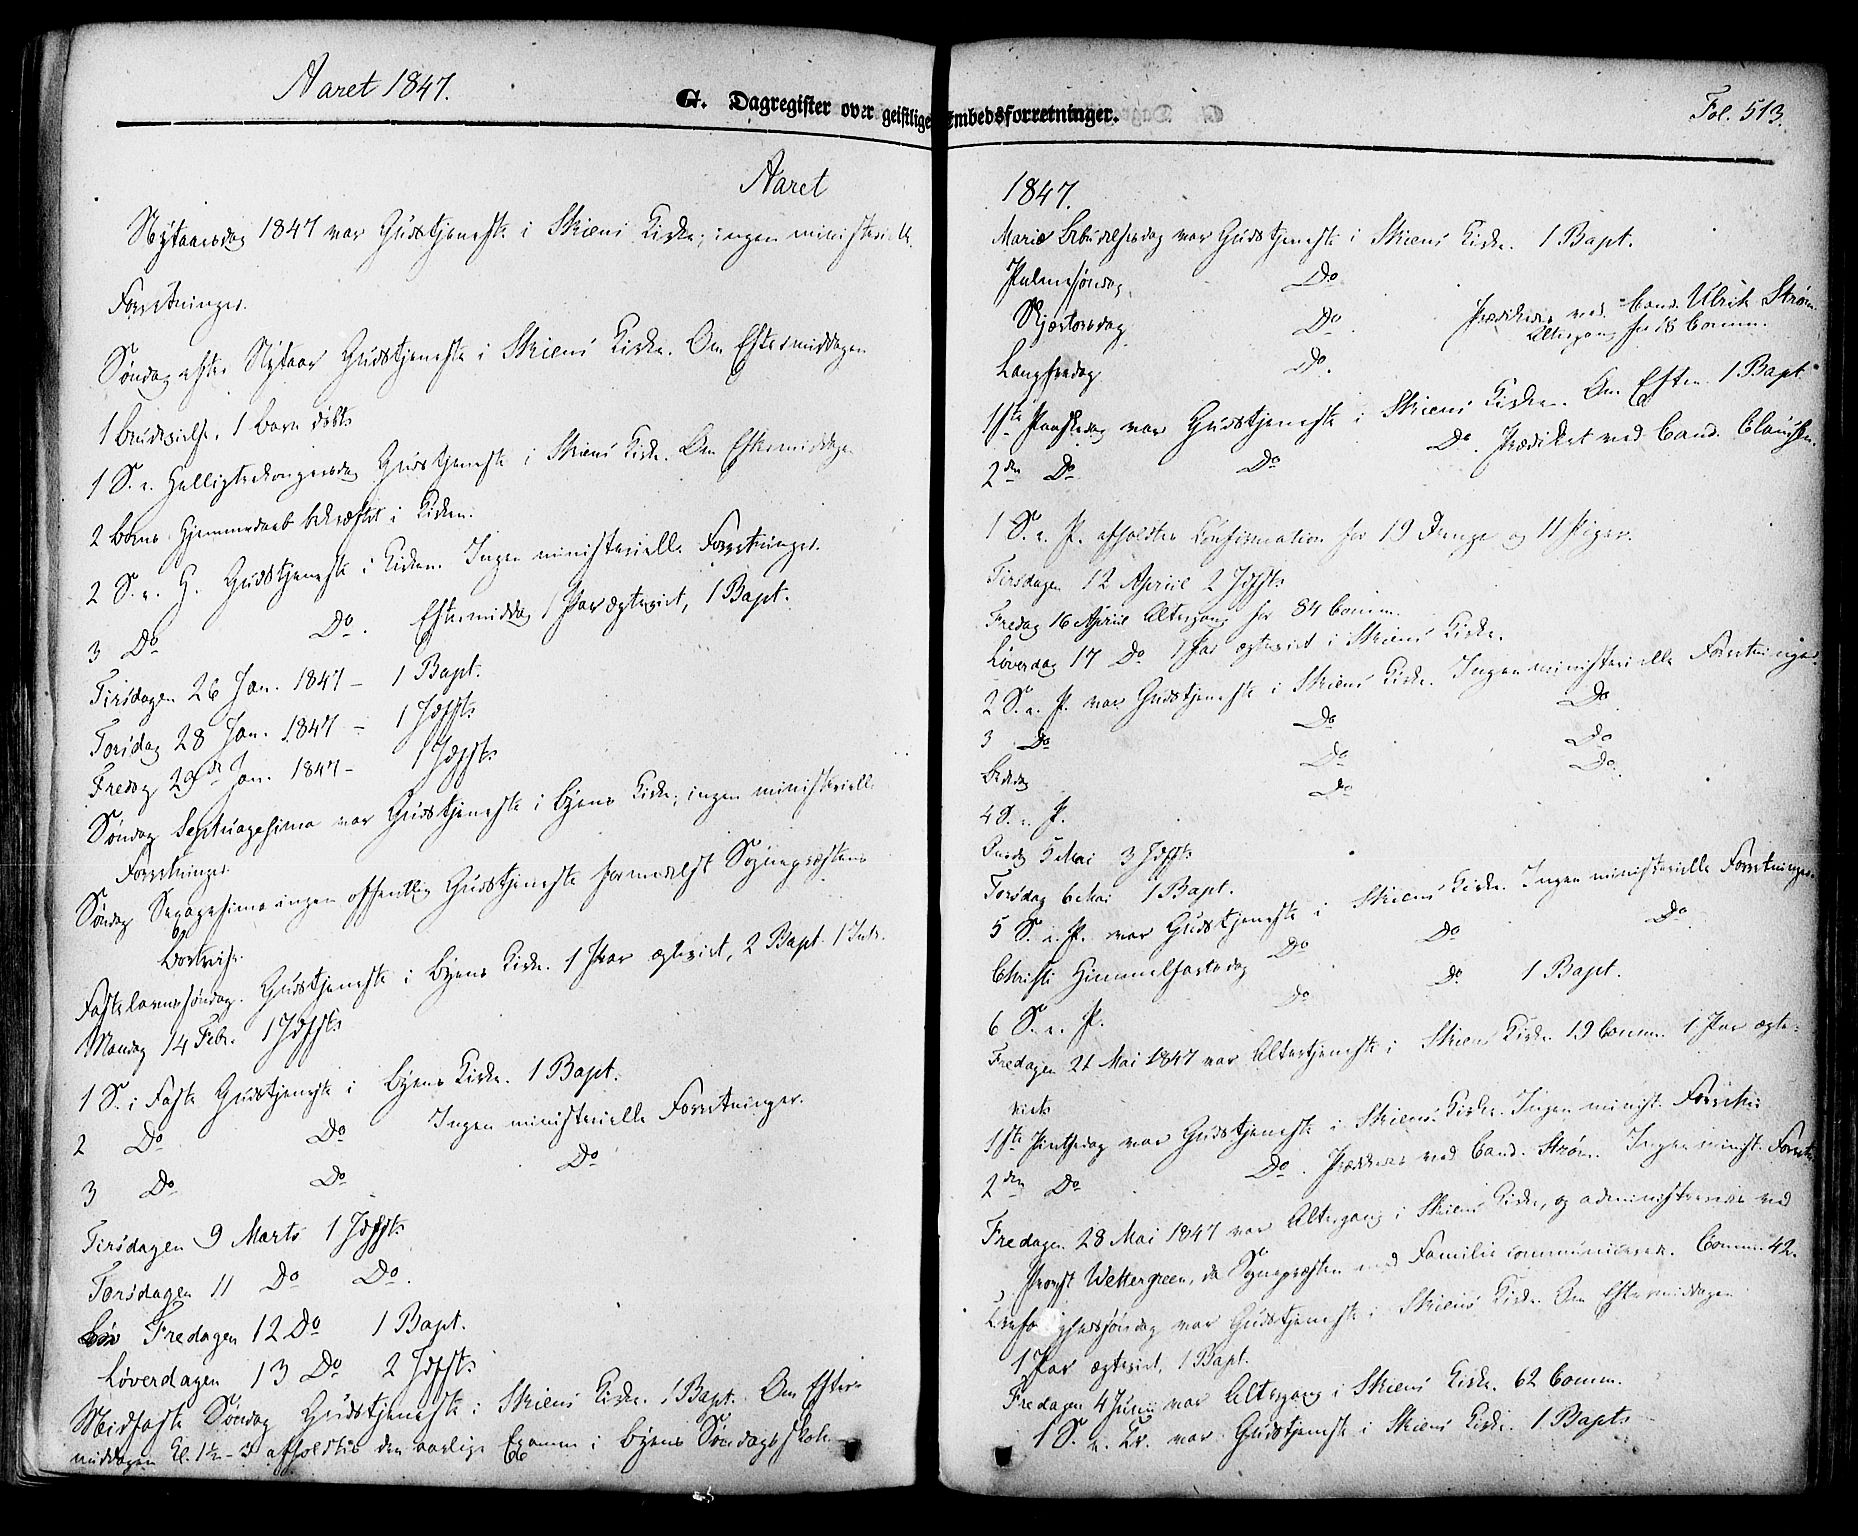 Aaret 1847.
G. Dagregister over geistlige Embedsforretninger.
Fol. 513.
Aaret
Nytaarsdag 1847 var Gudstjeneste i Skiens Kirke; ingen ministerielle
Forretninger.
Søndag efter Nytaar Gudstjeneste i Skiens Kirke. Om Eftermiddagen
1 brudevielse, 1 barn døbt
1 S. e. Helligtrekongersdag Gudstjeneste i Skiens Kirke. Om Eftermiddagen
2 børns Hjemmedaab bekræftet i Kirken.
2 S. e. H. Gudstjeneste i Kirken. Ingen ministerielle Forretninger.
3 Do Do. Eftermiddag 1 Par ægteviet, 1 Bapt.
Tirsdagen 26 Jan. 1847 – 1 Bapt.
Torsdag 28 Jan. 1847 – 1 Jdfst.
Fredag 29de Jan. 1847 – 1 Jdfst.
Søndag Septuagesima var Gudstjeneste i Byens Kirke; ingen ministerielle
Forretninger.
Søndag Sexagesima ingen offentlig Gudstjeneste formedelst Sognepræstens
Bortreise.
Fastelavnssøndag. Gudstjeneste i Byens Kirke. 1 Par ægteviet, 2 Bapt. 1 Intr.
Mandag 14 Febr. 1 Jdfst.
1 S. i Faste Gudstjeneste i Byens Kirke. 1 Bapt.
2 Do Do Ingen ministerielle Forretninger.
3 Do Do Do
Tirsdagen 9 Marts 1 Jdfst.
Torsdagen 11 Do Do.
Løv Fredagen 12 Do 1 Bapt.
Løverdagen 13 Do 2 Jdfst.
Midfaste Søndag Gudstjeneste i Skiens Kirke. 1 Bapt. Om Efter-
middagen Kl. 1½–3 afholdtes den aarlige Examen i Byens Søndagsskole
1847.
Mariæ Bebudelsesdag var Gudstjeneste i Skiens Kirke. 1 Bapt.
Palmesøndag, Do
Skjærtorsdag Do. Prædiken ved Cand. Ulrik Strøm
Altergang for 18 Comm.
Langfredag Do.
1ste Paaskedag var Gudstjeneste i Skiens Kirke. Om Efterm. 1 Bapt.
2den Do Do Do. Prædiket ved Cand. Clausen.
1 S. e. P. afholdtes Confirmation for 19 Drenge og 11 Piger.
Tirsdagen 12 Apriil 2 Jdfst.
Fredag 16 Apriil Altergang for 84 Comm.
Løverdag 17 Do 1 Par ægteviet i Skiens Kirke.
2 S. e. P. var Gudstjeneste i Skiens Kirke. Ingen ministerielle Forretninger.
3 Do Do Do
Bededag Do Do
4 S. e. P. Do Do.
Onsdag 5 Mai 3 Jdfst.
Torsdag 6 Mai 1 Bapt.
5 S. e. P. var Gudstjeneste i Skiens Kirke. Ingen ministerielle Forretninger.
Christi Himmelfartsdag Do Do Do
6 S. e. P. Do Do 1 Bapt.
Fredagen 21 Mai 1847 var Altertjeneste i Skiens Kirke. 19 Comm. 1 Par ægte-
viet
1ste Pintsedag var Gudstjeneste i Skiens Kirke. Ingen minist. Forretn:
2den Do Do. Prædiken ved Cand. Strøm. Ingen minist. Forretn
Fredagen 28 Mai 1847 var Altergang i Skiens Kirke, og administreredes ved
Provst Wettergreen, da Sognepræsten med Familie communicerede. Comm. 42.
var Gudstjeneste i Skiens Kirke. Om Eftermiddagen
1 Par ægteviet. 1 Bapt.
Fredagen 4 Juni var Altergang i Skiens Kirke. 62 Comm.
1 S. e. Tr. var Gudstjeneste i Skiens Kirke. 1 Bapt.